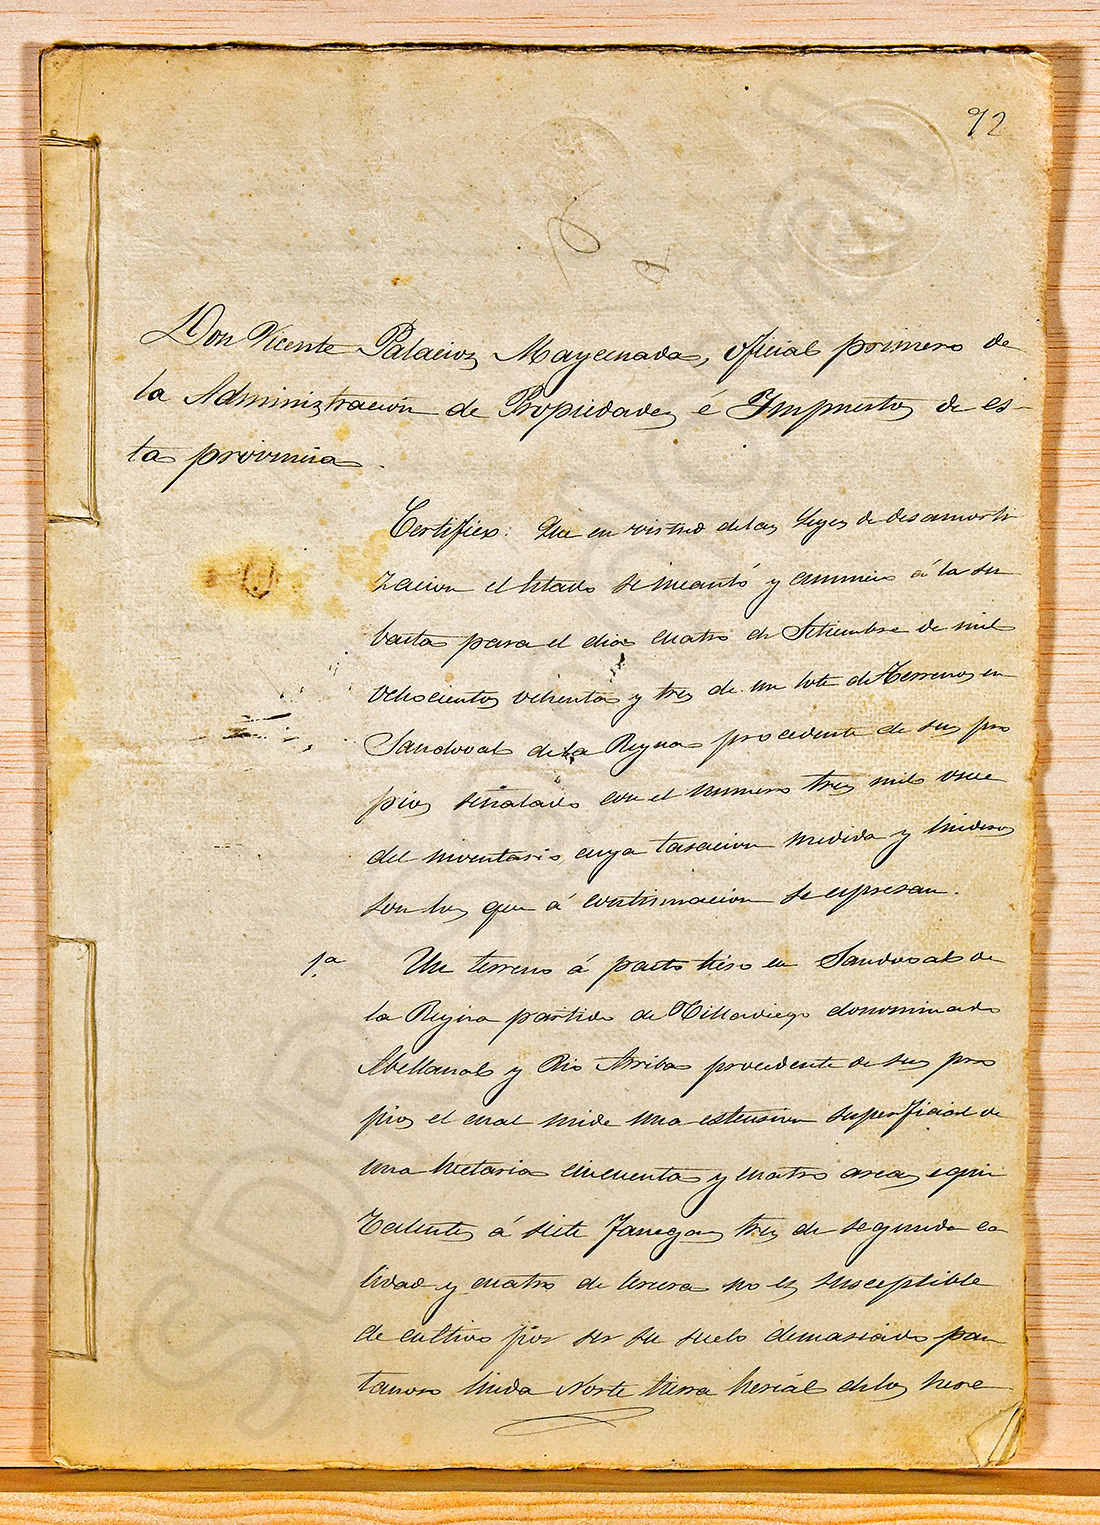 92
Don Vicente Palacios Maycenada, Oficial primero de
la Administración de Propiedades é Impuestos de es-
ta provincia.
Certifico: Que en virtud de las Leyes de desamorti
zacion el Estado se incautó y anuncio á la su
basta para el dia cuatro de Setiembre de mil
ochocientos ochenta y tres de un lote de Terrenos en
Sandoval de la Reyna procedente de sus pro
pios señalado con el numero tres mil once
del inventario, cuya tasacion medida y linderos
son los que á continuacion se espresan.
1.a Un terreno á pasto tieso en Sandoval de
la Reyna partido de Villadiego denominado
Abellanal y Rio Arriba procedente de sus pro
pios el cual mide una estension superficial de
una hectaria cincuenta y cuatro areas, equi
valentes á siete fanegas tres de segunda ca
lidad y cuatro de tercera no es susceptible
de cultivo por ser su suelo demasiado pan
tanoso linda Norte tierra herial de los here